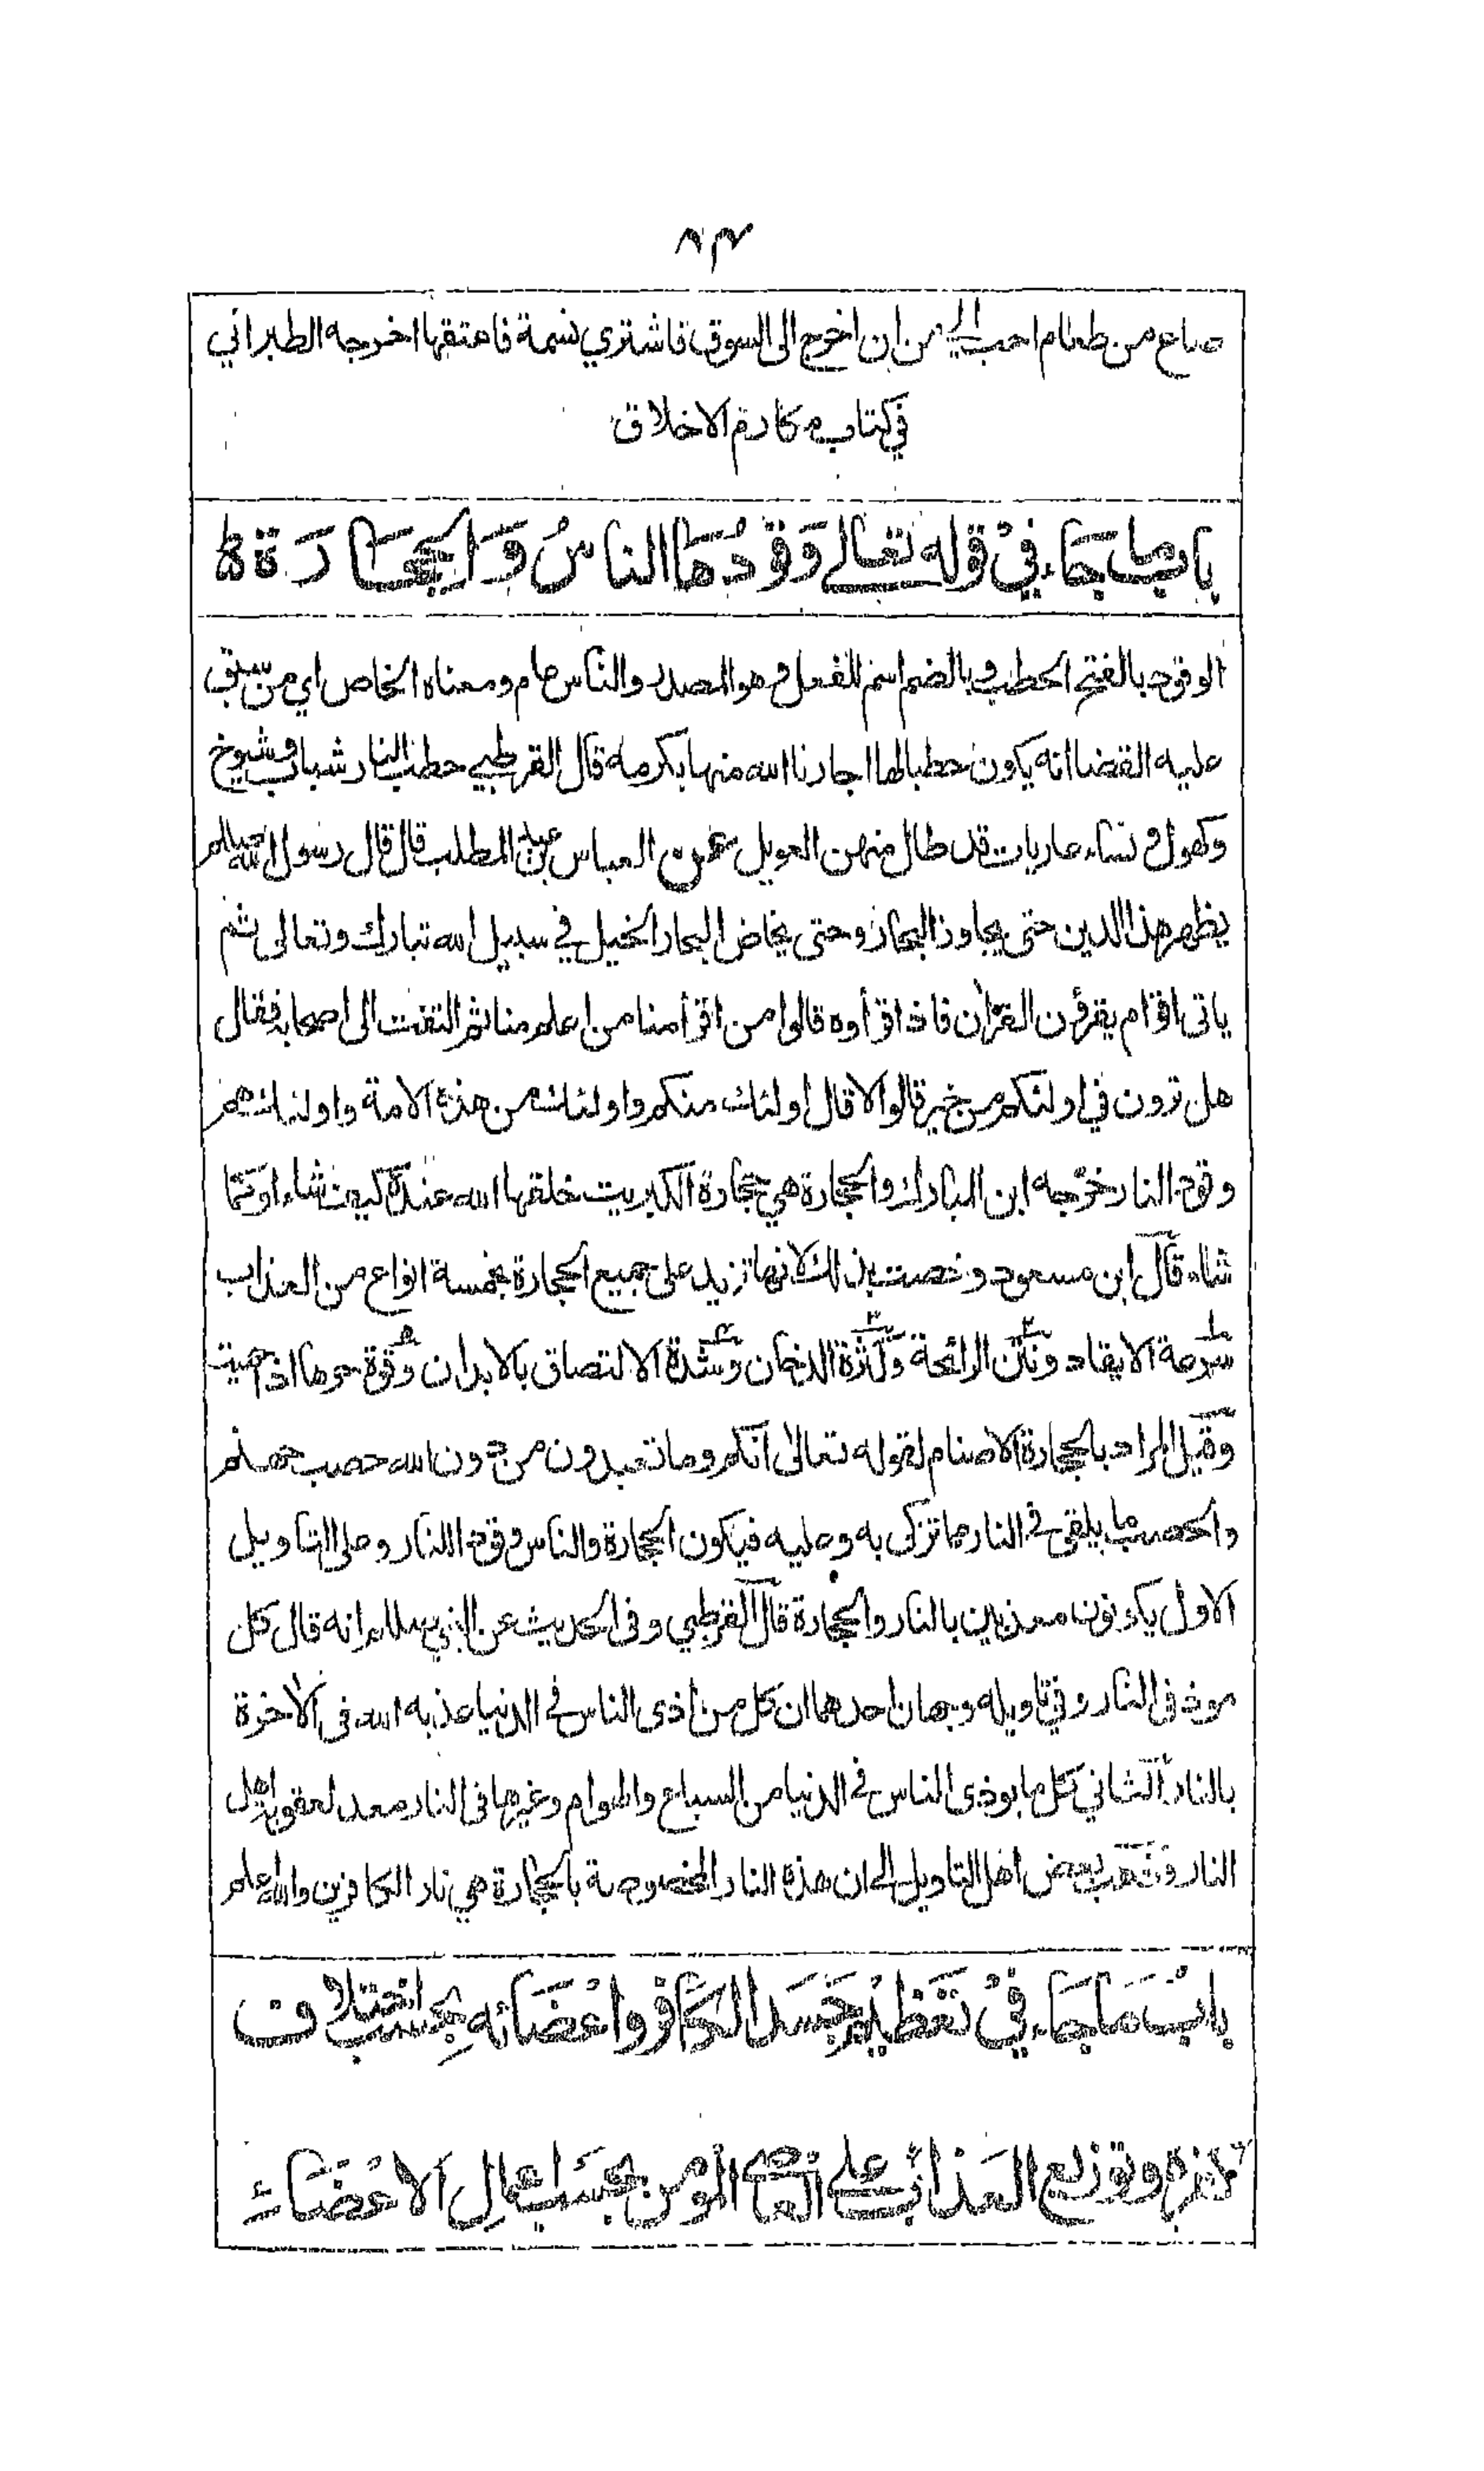 ٨٣
صاع من طعام احب الي من ان اخرج الى السوق فاشتري نسمة فاعتقها اخرجه الطبراني
في كتاب مكارم الاخلاق
باب ما جَاء في قوله تعالى وَقُوْدُهَا الناسُ وَالحِجَارَة ط
الوقود بالفتح الحطب وبالضم اسم للفعل وهو المصدر والناس عام ومعناه الخاص اي من سبق
عليه القضا انه يكون حطبا لها اجارنا الله منها بكرمه قال القرطبي حطب النار شباب وشيوخ
وكهول ونساء عاريات قد طال منهن العويل عن العباس بن عبد المطلب قال قال رسول الله صللم
يظهر هذا الدين حتى يجاوز البحار وحتى يخاض البحار الخيل في سبيل الله تبارك وتعالى ثم
ياتى اقوام يقرؤن القرآن فاذا قرأوه قالوا من اقرأ منا من اعلم منا ثم التفت الى اصحابه فقال
هل ترون في اولئكم من خير قالوا لا قال اولئك منكم واولئك من هذه الامة واولئك هم
وقود النار خرّجه ابن المبارك والحجارة هي حجارة الكبريت خلقها الله عنده كيف شاء او كما
شاء قال ابن مسعود وخصت بذلك لانها تزيد على جميع الحجارة بخمسة انواع من العذاب
سرعة الايقاد ونتن الرائحة وكثرة الدخان وشدة الالتصاق بالابدان وقوة حرها اذا حميت
وقيل المراد بالحجارة الاصنام لقوله تعالى انكم وما تعبدون من دون الله حصب جهنم
والحصب ما يلقى في النار مما تزكى به وعليه فيكون الحجارة والناس وقودا للنار وعلى التاويل
الاول يكونون معذبين بالنار والحجارة قال القرطبي وفى الحديث عن النبي صللم انه قال كل
موذ فى النار وفي تاويله وجهان احدهما ان كل من اذى الناس في الدنيا عذبه الله فى الآخرة
بالنار الثاني كل ما يوذى الناس في الدنيا من السباع والهوام وغيرها فى النار معد لعقوبة اهل
النار وذهب بعض اهل التاويل الى ان هذه النار المخصوصة بالحجارة هي نار الكافرين والله اعلم
بابُ مَا جَاء في تَعْظيم جَسَد الكَافر واعْضَائه بحسب اختلاف
كفره وتوزيع العَذاب على العاصي المؤمن بحَسَب اعمال الاعْضَاء